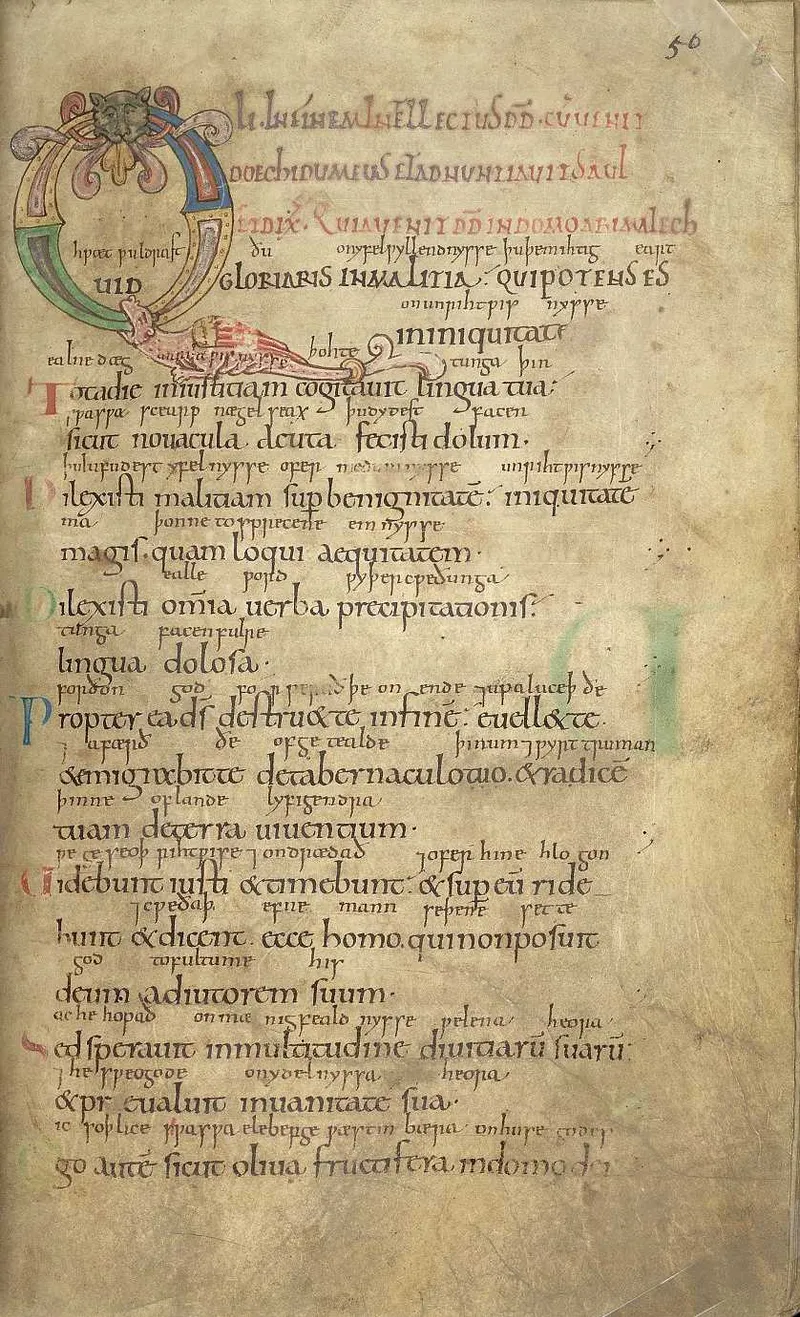 56
LI. INFINEM INTELLECTUS DD. CUM UENIT
DOECH IDUMEUS ET ADNUNTIAUIT SAUL
ET DIX. QUIA UENIT DD IN DOMO ABIMALECH
hƿæt ƿuldrast ðu onyfel ꝥþe mihtig eart
UID GLORIARIS INMALITIA. QUI POTENS ES
on unrihtƿis nysse
ininiquitate
ealne dæg þohte tunga þin
Tota die iniustitiam cogitauit lingua tua:
sƿa sƿa scearp nægel seax þu dydest facen
sicut nouacula. acuta fecisti dolum.
þu lufudest yfelnysse ofer unrihtƿisnysse
Dilexisti malitiam sup benignitatē: iniquitate
ma þonne to sprecene emnysse
magis. quam loqui aequitatem.
ealle ƿord
Dilexisti om̄ia uerba precipitationis:
tunga facenfulre
lingua dolosa.
forðon god on ende ⁊ upaluceþ ðe
Propter ea ds̄ destru&te infinē: euell&te.
⁊ ðe of getealde þinum ⁊ ƿyrtruman
&emigrabit te detabernaculo tuo. &radicē
þinne of lande lyfigendra
tuam deterra uiuentium.
geseoþ rihtƿise ⁊ ondrædað ⁊ ofer hine
Uidebunt iusti &timebunt: &sup eū ride
⁊ cƿeðaþ. efne mann seþe ne sette
bunt &dicent. ecce homo. qui non posuit
god to fultume his
deum adiutorem suum.
ac he hopað on mænigfealdnysse ƿelena heora
Sed sperauit inmultitudine diuitiarū suarū:
⁊ he onydelnyssa heora
&preualuit inuanitate sua.
ic soþlice sƿa sƿa eleberge ƿæstm bæra on huse godes
Ego autē sicut oliua fructifera indomo